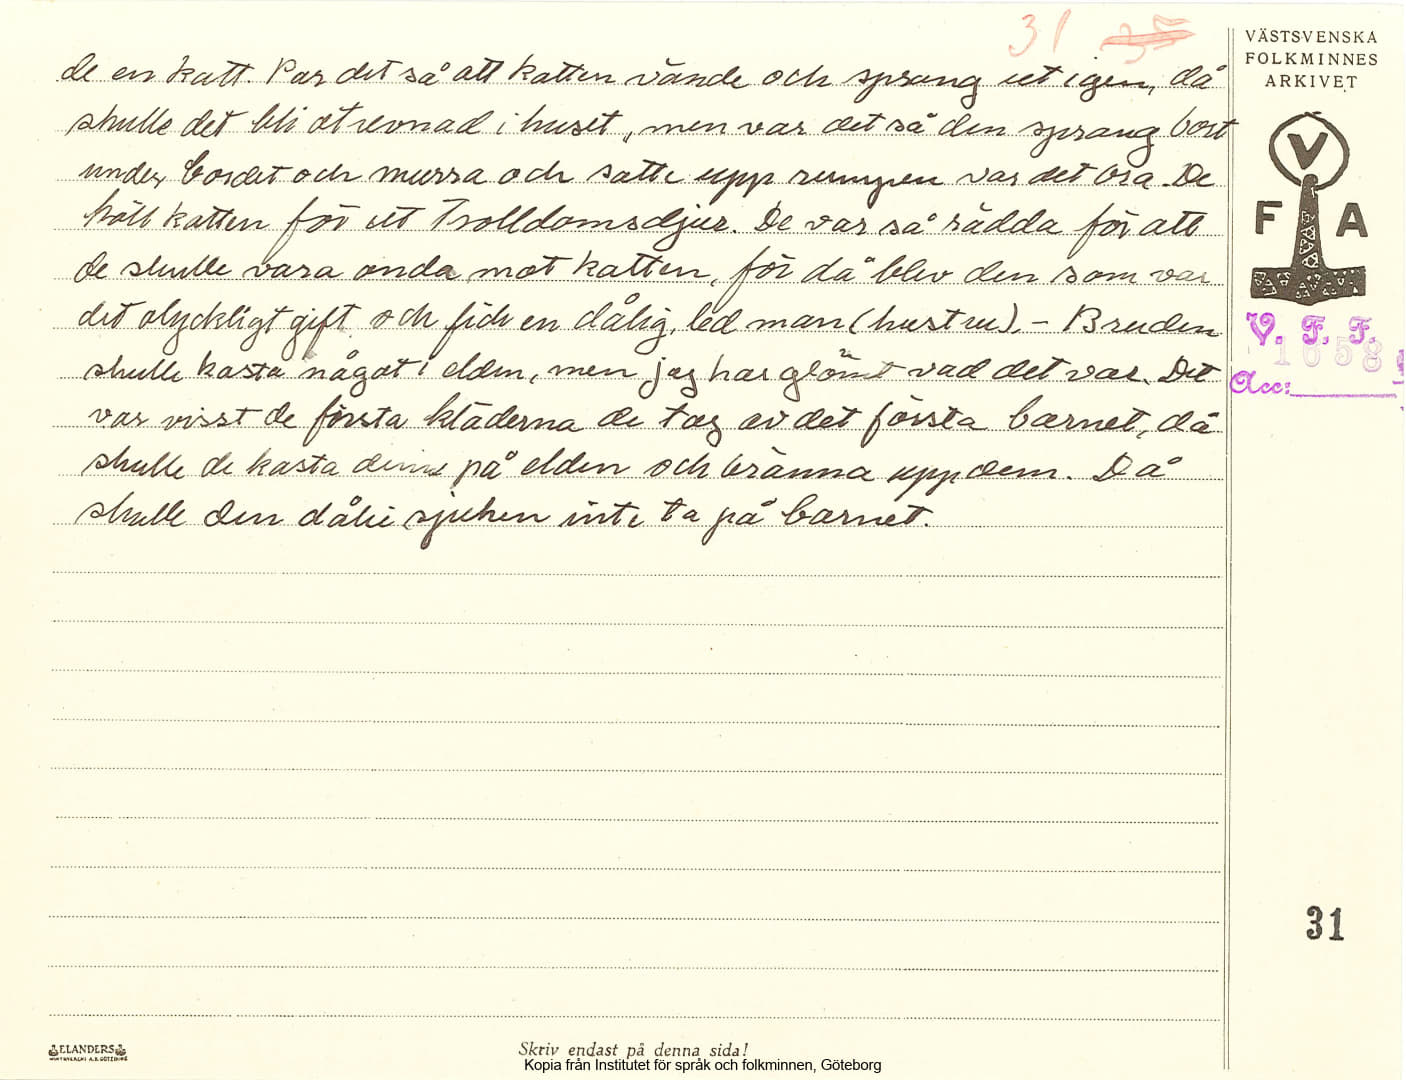 31 35
de en katt. Var det så att katten vände och sprang ut igen, då
skulle det bli otrevnad i huset, men var det så den sprang bort
under bordet och murra och satte upp rumpen var det bra. De
höll katten för ett Trolldomsdjur. De var så rädda för att
de skulle vara onda mot katten, för då blev den som var
det olyckligt gift och fick en dålig, led man (hustru). – Bruden
skulle kasta något i elden, men jag har glömt vad det var. Det
var visst de första kläderna de tog av det första barnet, då
skulle de kasta dem på elden och bränna upp dem. Då
skulle den dålie sjuken inte ta på barnet.
VÄSTSVENSKA
FOLKMINNES
ARKIVET
V
F A
V. F. F.
1658
Acc:
31
ELANDERS
Skriv endast på denna sida!
Kopia från Institutet för språk och folkminnen, Göteborg